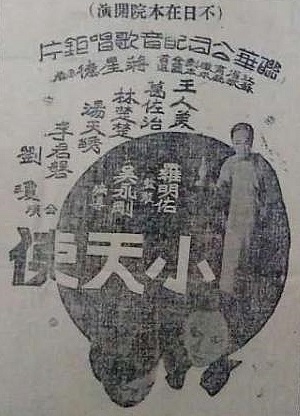 (不日在本院開演)
聯華公司配音歌唱鉅片
蔣星德
王人美
葛佐治
林楚楚
湯天綉
李君磐
劉瓊
羅明佑
吳永剛
小天使